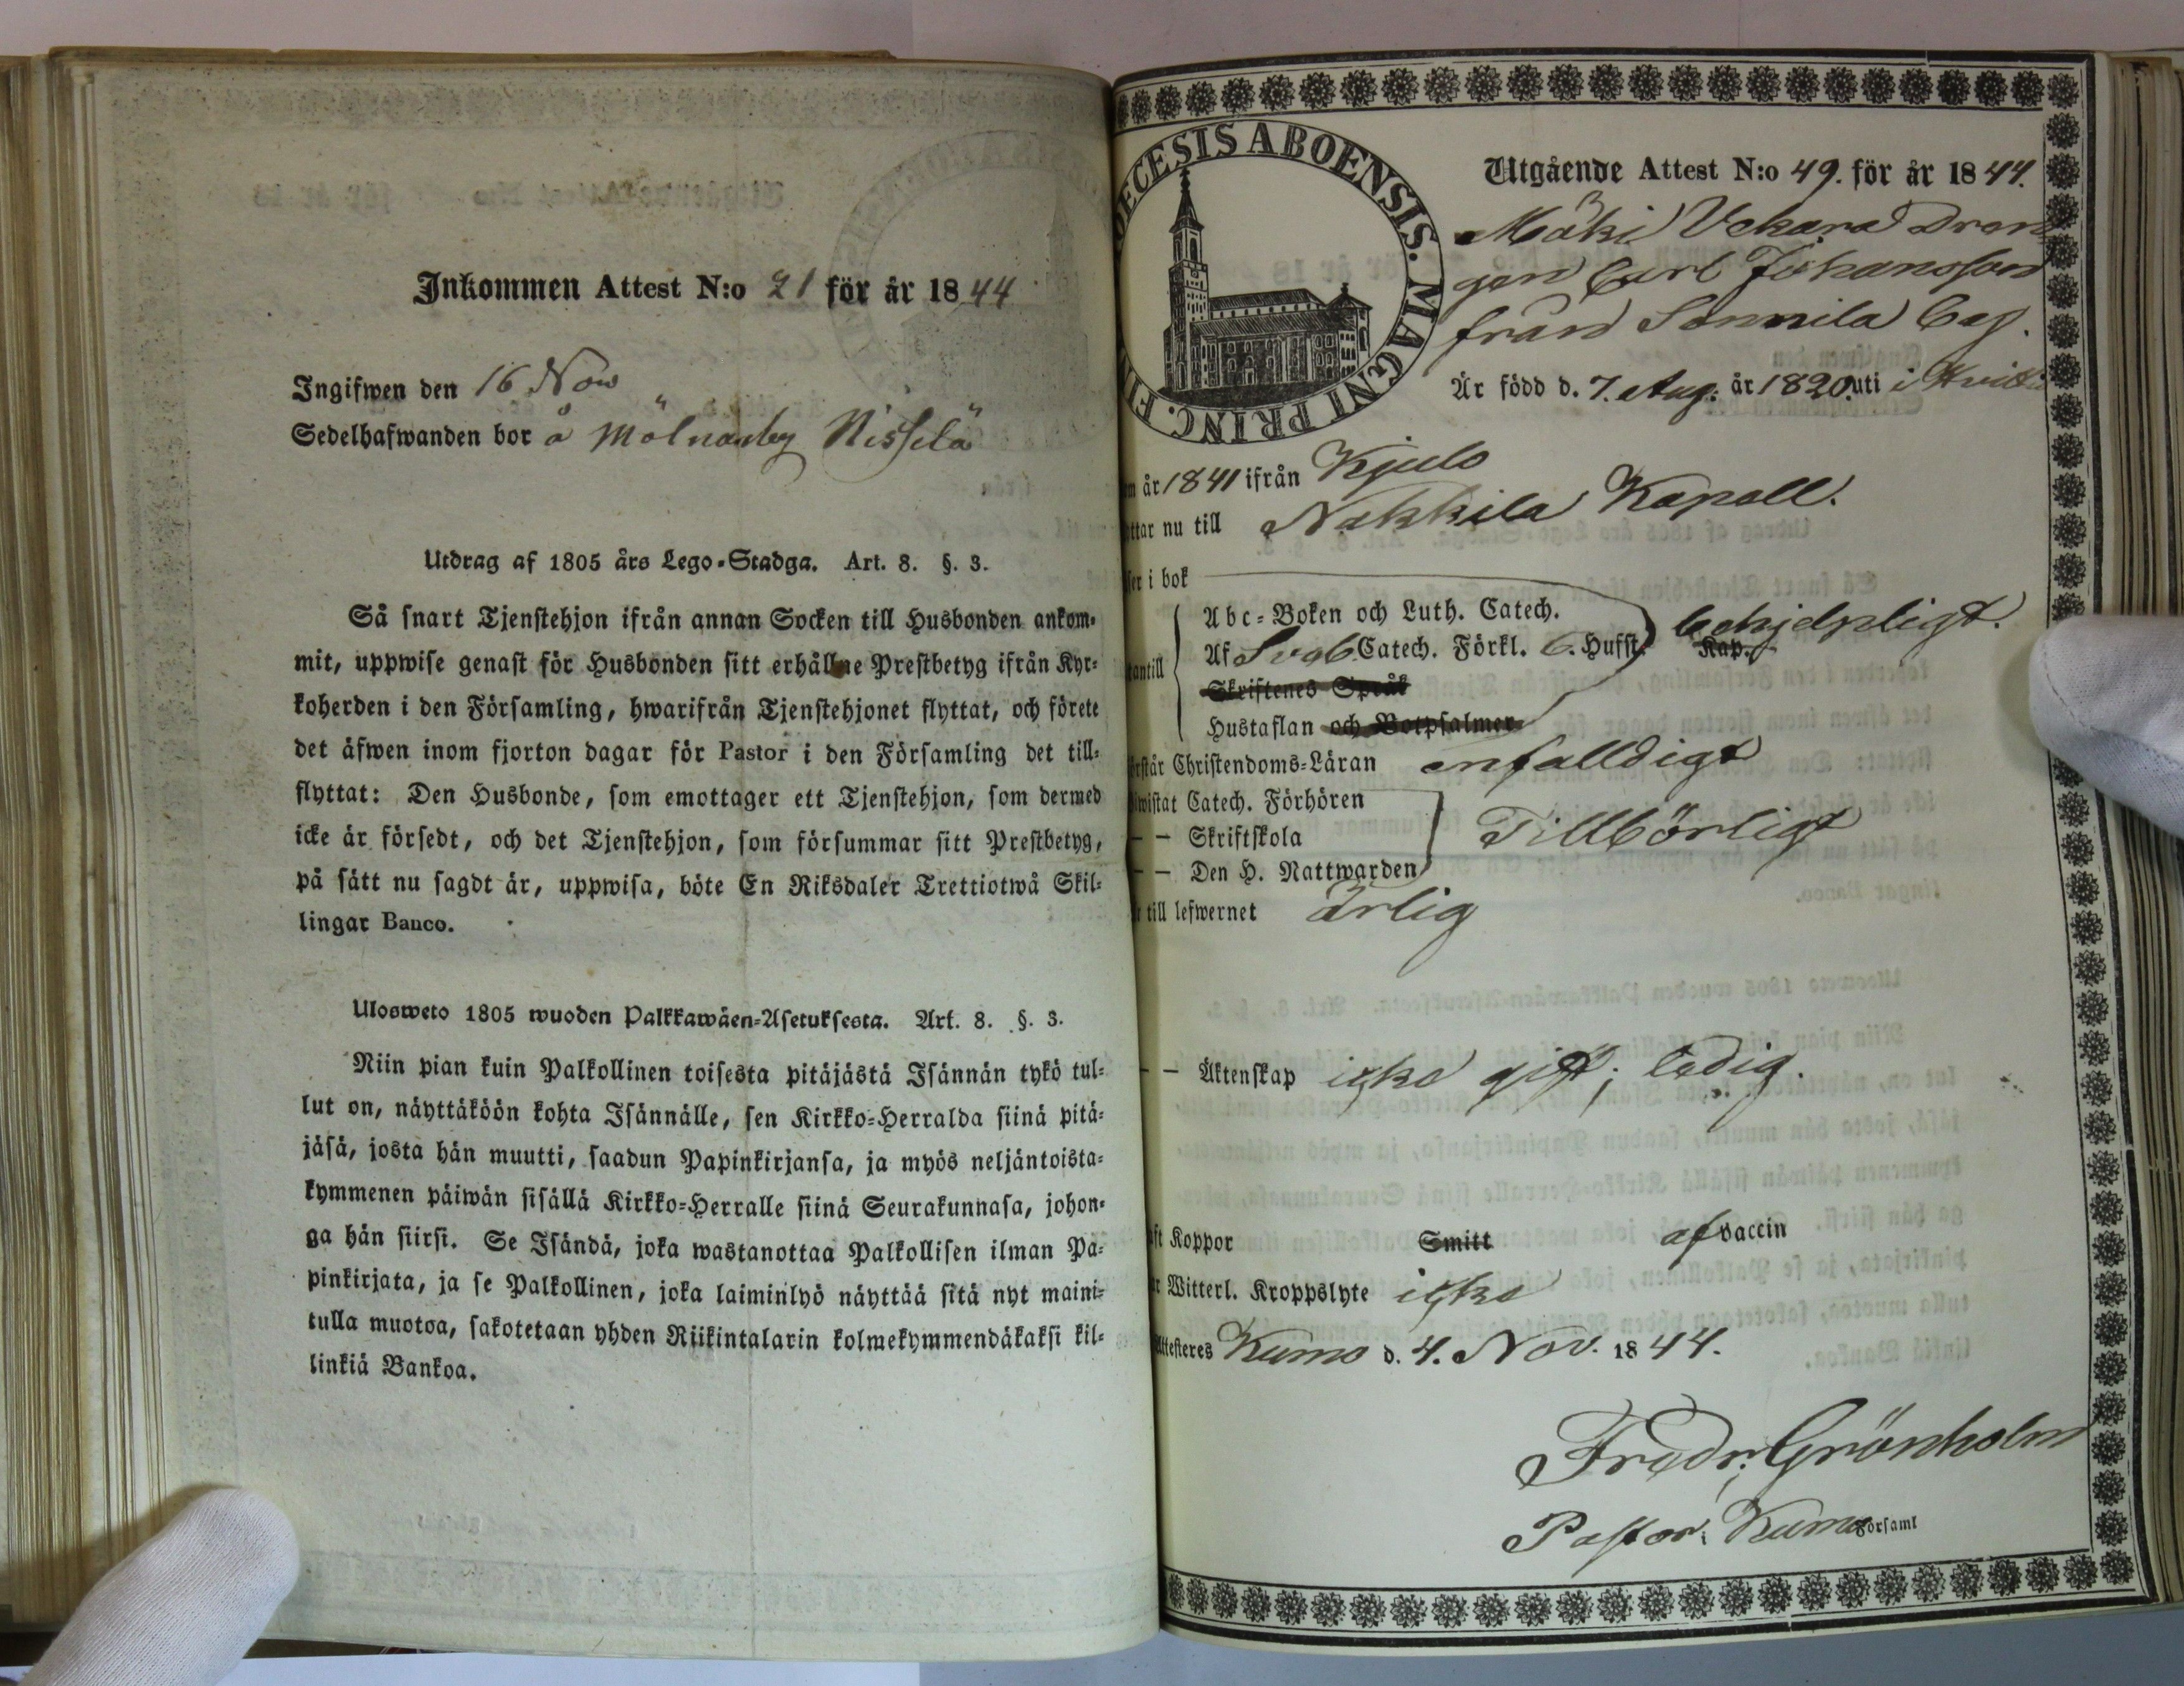 Inkommen Attest N:o 21 för år 1844
Ingifwen den 16 Nov
Sedelhafwanden bor å Mölnarby Nissilä
Utdrag af 1805 års Lego-Stadga. Art. 8. §. 3.
Så snart Tjenstehjon ifrån annan Socken till Husbonden ankom-
mit, uppwise genast för Husbonden sitt erhållne Prestbetyg ifrån Kyr-
koherden i den Församling, hwarifrån Tjenstehjonet flyttat, och förete
det äfwen inom fjorton dagar för Pastor i den Församling det till-
flyttat: Den Husbonde, som emottager ett Tjenstehjon, som dermed
icke är försedt, och det Tjenstehjon, som försummar sitt Prestbetyg,
på sätt nu sagdt är, uppwisa, böte En Riksdaler Trettiotwå Skil-
lingar Banco.
Ulosweto 1805 wuoden Palkkawäen-Asetuksesta. Art. 8. §. 3.
Niin pian kuin Palkollinen toisesta pitäjästä Isännän tykö tul-
lut on, näyttäköön kohta Isännälle, sen Kirkko-Herralda siinä pitä-
jäsä, josta hän muutti, saadun Papinkirjansa, ja myös neljäntoista-
kymmenen päiwän sisällä Kirkko-Herralle siinä Seurakunnasa, johon-
ga hän siirsi. Se Isändä, joka wastanottaa Palkollisen ilman Pa-
pinkirjata, ja se Palkollinen, joka laiminlyö näyttää sitä nyt maini-
tulla muotoa, sakotetaan yhden Riikintalarin kolmekymmendäkaksi kil-
linkiä Bankoa.
ECESIS ABOENSIS. MAGNI PRINC. FI
Utgående Attest N:o 49. för år 1844.
Mäki Uckara Drän
gen Carl Johansson
från Sonnila Cap.
Är född d. 7. Aug. år 1820 uti i Hvitti
m år 1841 ifrån Kjulo
ttar nu till Nakkila Kapell.
ser i bok
Abc-Boken och Luth. Catech.
Af Sveb. Catech. Förkl. 6. Hufst. Kap. behjelpligt.
tantill
Skriftenes Språk
Hustaflan och Botpsalmer
rstår Christendoms-Läran enfalldigt
lwistat Catech. Förhören
– – Skriftskola Tillbörligt
– – Den H. Nattwarden
r till lefwernet Ärlig
– – Äktenskap icke gift; ledig.
aft Koppor Smitt af vaccin
r Witterl. Kroppslyte icke
ttesteres Kumo d. 4. Nov. 1844.
Fredr. Grönholm
Pastor. Kumo Församl